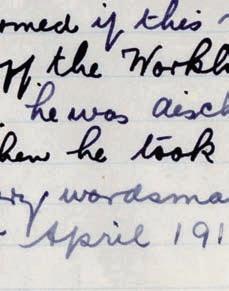 ormed if this
off the Workh
he was disch
hen he took
ry wordsma
April 191